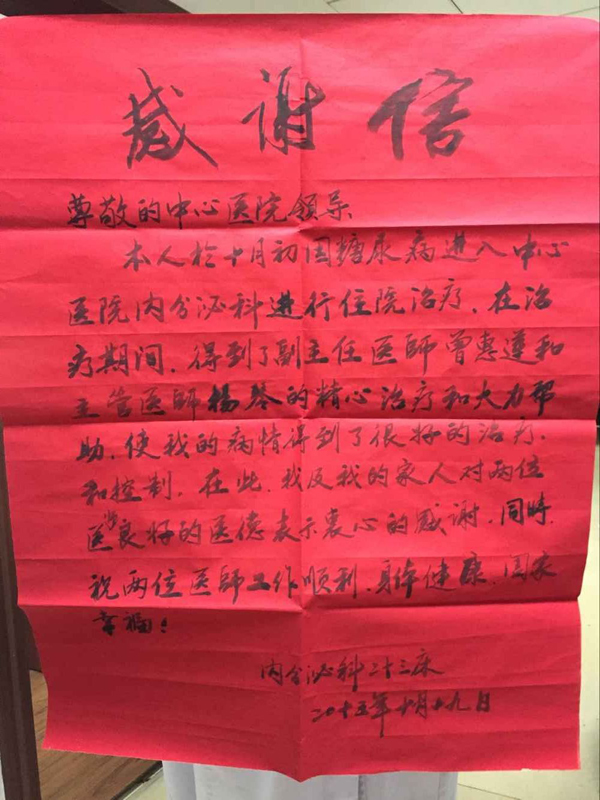 感谢信
尊敬的中心医院领导
本人於十月初因糖尿病进入中心
医院内分泌科进行住院治疗。在治
疗期间，得到了副主任医師曾惠莲和
主管医師杨琴的精心治疗和大力帮
助，使我的病情得到了很好的治疗，
和控制，在此，我及我的家人对两位
医师良好的医德表示衷心的感谢，同时，
祝两位医師工作顺利，身体健康，国家
幸福！
内分泌科二十三床
二〇十五年十月十九日